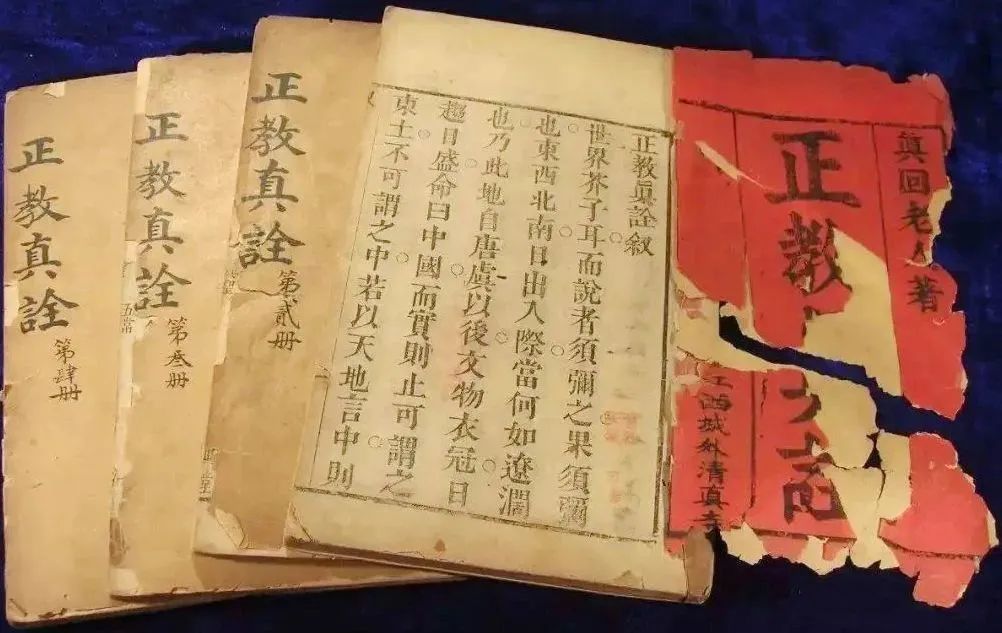 眞回老人著
正教
江西城外清真寺
正教眞詮叙
世界芥子耳而說者須彌之果須彌
也東西北南日出入際當何如遼濶
也乃此地自唐虞以後文物衣冠日
趨日盛命曰中國而實則止可謂之
東土不可謂之中若以天地言中則
正教真詮
第貳册
正教真詮
第叁册
五常
正教真詮
第肆册